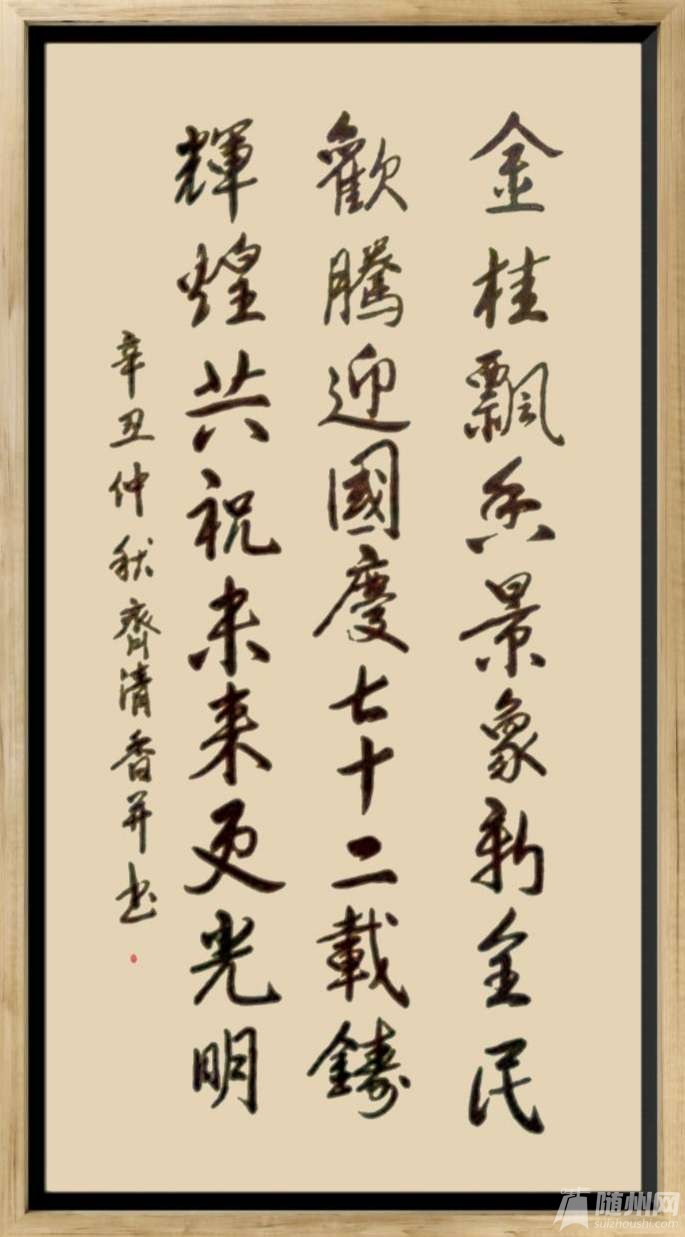 金桂飄香景象新全民
歡騰迎國慶七十二載鑄
輝煌共祝未来更光明
辛丑仲秋齊清香并书
随州网
suizhoushi.com